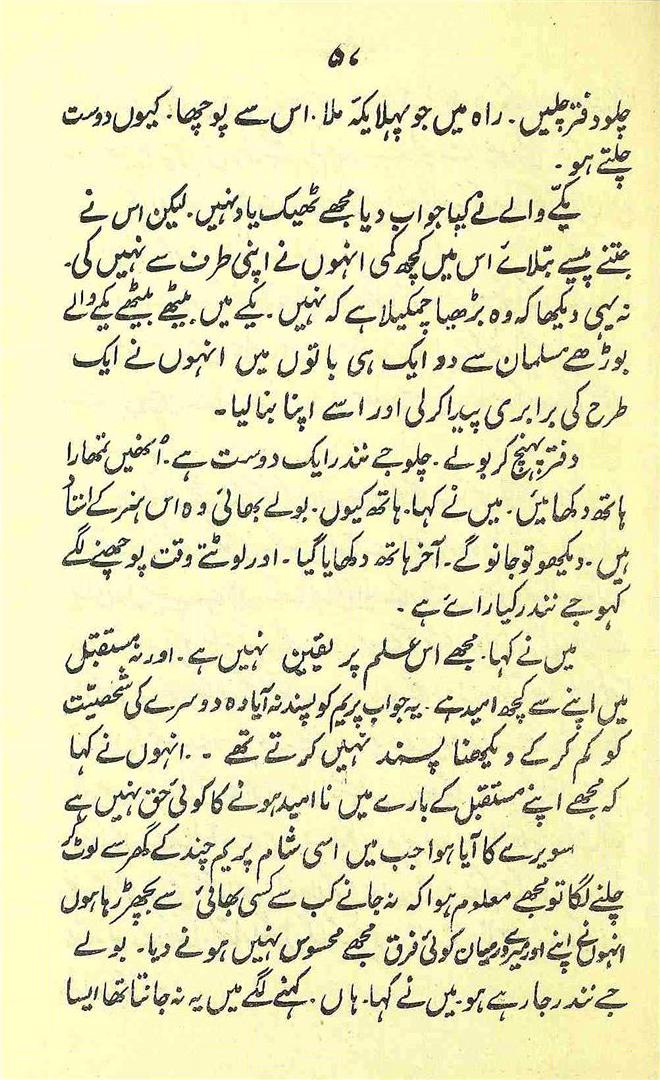 ۵۷
چلو دفتر چلیں۔ راہ میں جو پہلا یکہ ملا۔ اس سے پوچھا۔ کیوں دوست
چلتے ہو۔
یکّے والے نے کیا جواب دیا مجھے ٹھیک یاد نہیں۔ لیکن اس نے
جتنے پیسے بتلائے اس میں کچھ کمی انہوں نے اپنی طرف سے نہیں کی۔
نہ یہی دیکھا کہ وہ بڑھیا چمکیلا ہے کہ نہیں۔ یکے میں بیٹھے بیٹھے یکے والے
بوڑھے مسلمان سے دو ایک ہی باتوں میں انہوں نے ایک
طرح کی برابری پیدا کر لی اور اسے اپنا بنا لیا۔
دفتر پہنچ کر بولے۔ چلو جے نندر ایک دوست ہے۔ اُنھیں تمھارا
ہاتھ دکھائیں۔ میں نے کہا۔ ہاتھ کیوں۔ بولے بھائی وہ اس ہنر کے استاد
ہیں۔ دیکھو تو جانو گے۔ آخر ہاتھ دکھایا گیا۔ اور لوٹتے وقت پوچھنے لگے
کہو جے نندر کیا رائے ہے۔
میں نے کہا۔ مجھے اس علم پر یقین نہیں ہے۔ اور نہ مستقبل
میں اپنے سے کچھ امید ہے۔ یہ جواب پریم کو پسند نہ آیا وہ دوسرے کی شخصیّت
کو کم کر کے دیکھنا پسند نہیں کرتے تھے۔ انہوں نے کہا
کہ مجھے اپنے مستقبل کے بارے میں نا امید ہونے کا کوئی حق نہیں ہے
سویرے کا آیا ہوا جب میں اسی شام پریم چند کے گھر سے لوٹ کر
چلنے لگا تو مجھے معلوم ہوا کہ نہ جانے کب سے کسی بھائی سے بچھڑ رہا ہوں
انہوں نے اپنے اور میرے درمیان کوئی فرق مجھے محسوس نہیں ہونے دیا۔ بولے
جے نندر جا رہے ہو۔ میں نے کہا۔ ہاں۔ کہنے لگے میں یہ نہ جانتا تھا ایسا